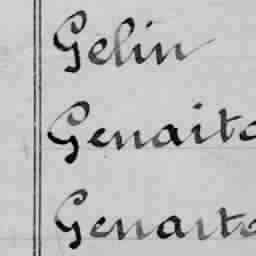 Gelin
Genaito
Genaito